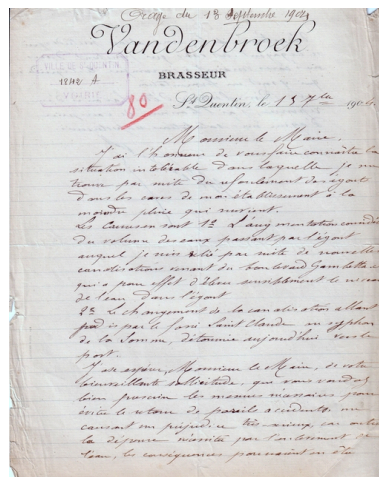 Orage du 13 Septembre 1904
Vandenbroek
BRASSEUR
VILLE DE ST QUENTIN
1842 A
VOIRIE
80
St Quentin, le 15 7bre 1904
Monsieur le Maire,
J'ai l'honneur de vous faire connaître la
situation intolérable dans laquelle je me
trouve par suite du refoulement des égouts
dans les caves de mon établissement à la
moindre pluie qui survient.
Les causes sont 1° L'augmentation considé
du volume des eaux passant par l'égout
auquel je suis relié par suite de nouvelles
canalisations venant du boulevard Gambetta
qui a pour effet d'élever le niveau
de l'eau dans l'égout
2° Le changement de la canalisation allant
jadis par le fossé Saint Claude, en syphon
de la Somme, détournée aujourd'hui vers le
port.
J'ose espérer, Monsieur le Maire, de votre
bienveillante sollicitude, que vous voudrez
bien prescrire les mesures nécessaires pour
éviter le retour de pareils accidents, me
causant un préjudice très sérieux, car outre
la dépense nécessitée par l'enlèvement de
l'eau, les conséquences pourraient en être